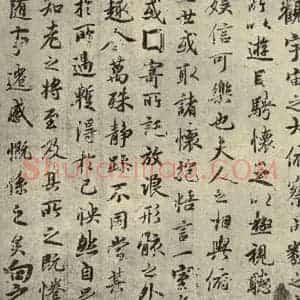 觀宇宙之大俯察
所以遊目騁懷足以極視聽
娛信可樂也夫人之相與俯
世或取諸懷抱悟言一室
或因寄所託放浪形骸之外
趣舍萬殊靜躁不同當其
於所遇蹔得於己怏然自
知老之將至及其所之既惓
隨事遷感慨係之矣向之